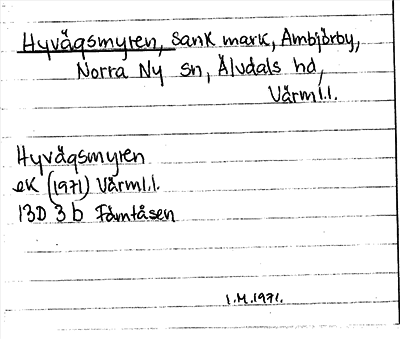 Hyvägsmyren, Sank mark, Ambjörby,
Norra Ny sn, Älvdals hd,
Värml.l.
Hyvägsmyren
ek (1971) Värml.l.
13D 3 b Fämtåsen
I.M.1971.